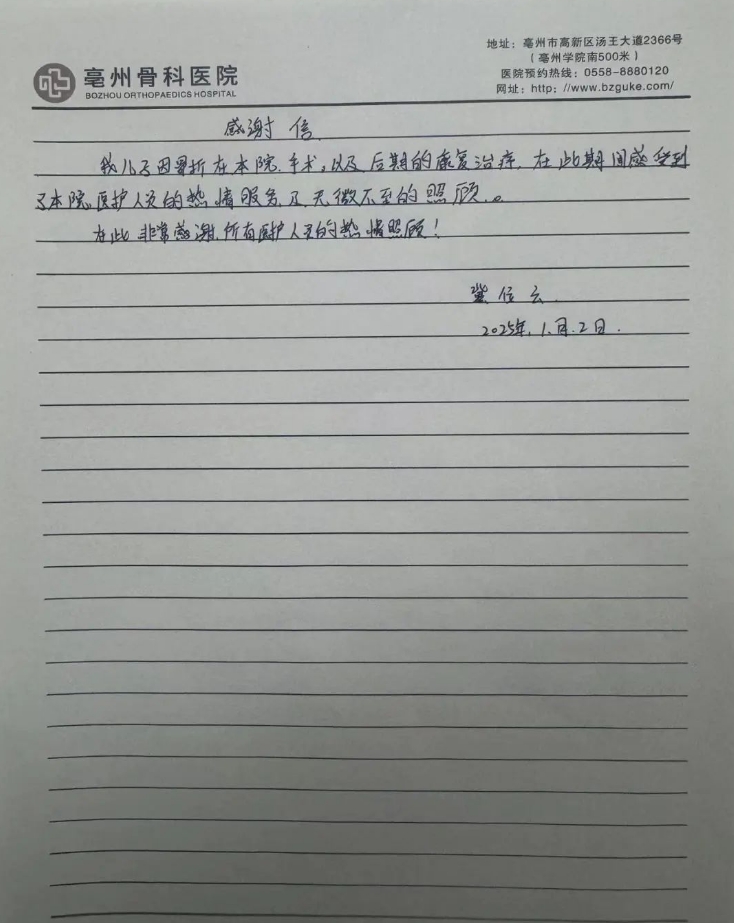 亳州骨科医院
BOZHOU ORTHOPAEDICS HOSPITAL
地址：亳州市高新区汤王大道2366号
（亳州学院南500米）
医院预约热线：0558-8880120
网址：http：//www.bzguke.com/
感谢信
我儿子因骨折在本院手术，以及后期的康复治疗，在此期间感受到
了本院医护人员的热情服务及无微不至的照顾。
在此非常感谢所有医护人员的热情照顾！
位云
2025年.1.月.2日.